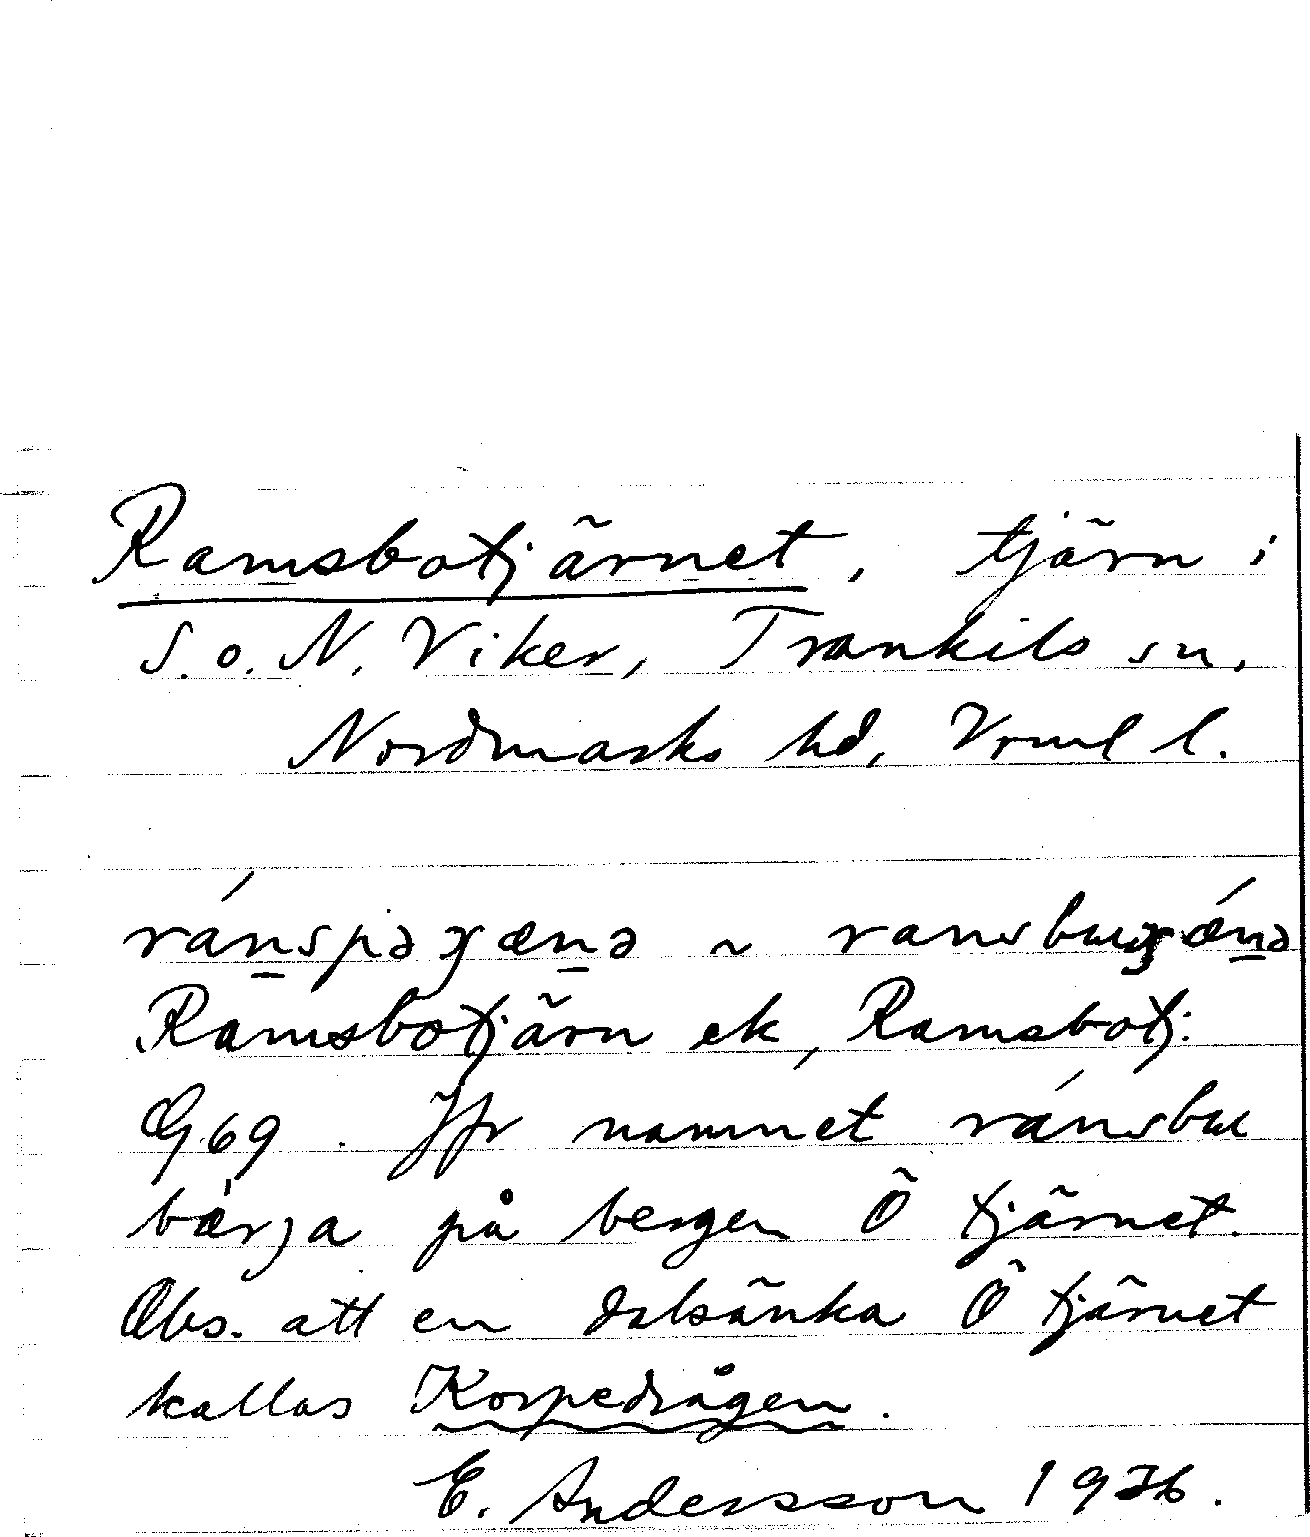 Ramsbotjärnet, tjärn i
S. o. N. Viker, Trankils sn,
Nordmarks hd, Vrml l.
ránspəɣænə ~ ransbuɣǽnə
Ramsbotjärn ek, Ramsbotj.
G 69. Jfr namnet ránsbu
bærja på bergen Ö tjärnet.
Obs. att en dalsänka Ö tjärnet
kallas Korpedrågen.
E. Andersson 1936.